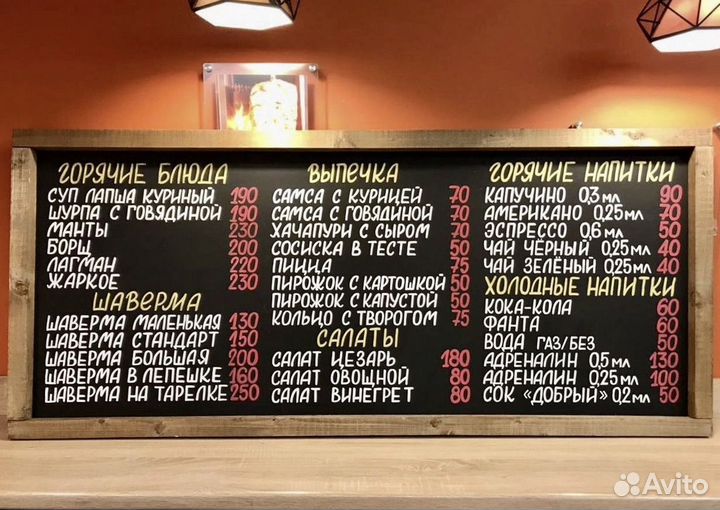 ГОРЯЧИЕ БЛЮДА
СУП ЛАПША КУРИНЫЙ 190
ШУРПА С ГОВЯДИНОЙ 190
МАНТЫ 230
БОРЩ 200
ЛАГМАН 220
ЖАРКОЕ 230
ШАВЕРМА
ШАВЕРМА МАЛЕНЬКАЯ 130
ШАВЕРМА СТАНДАРТ 150
ШАВЕРМА БОЛЬШАЯ 200
ШАВЕРМА В ЛЕПЕШКЕ 160
ШАВЕРМА НА ТАРЕЛКЕ 250
ВЫПЕЧКА
САМСА С КУРИЦЕЙ 70
САМСА С ГОВЯДИНОЙ 70
ХАЧАПУРИ С СЫРОМ 70
СОСИСКА В ТЕСТЕ 50
ПИЦЦА 75
ПИРОЖОК С КАРТОШКОЙ 50
ПИРОЖОК С КАПУСТОЙ 50
КОЛЬЦО С ТВОРОГОМ 75
САЛАТЫ
САЛАТ ЦЕЗАРЬ 180
САЛАТ ОВОЩНОЙ 80
САЛАТ ВИНЕГРЕТ 80
ГОРЯЧИЕ НАПИТКИ
КАПУЧИНО 0,3 МЛ 90
АМЕРИКАНО 0,25 МЛ 70
ЭСПРЕССО 0,6 МЛ 50
ЧАЙ ЧЁРНЫЙ 0,25 МЛ 40
ЧАЙ ЗЕЛЁНЫЙ 0,25 МЛ 40
ХОЛОДНЫЕ НАПИТКИ
КОКА-КОЛА 60
ФАНТА 60
ВОДА ГАЗ/БЕЗ 50
АДРЕНАЛИН 0,5 МЛ 130
АДРЕНАЛИН 0,25 МЛ 100
СОК «ДОБРЫЙ» 0,2 МЛ 50
Avito